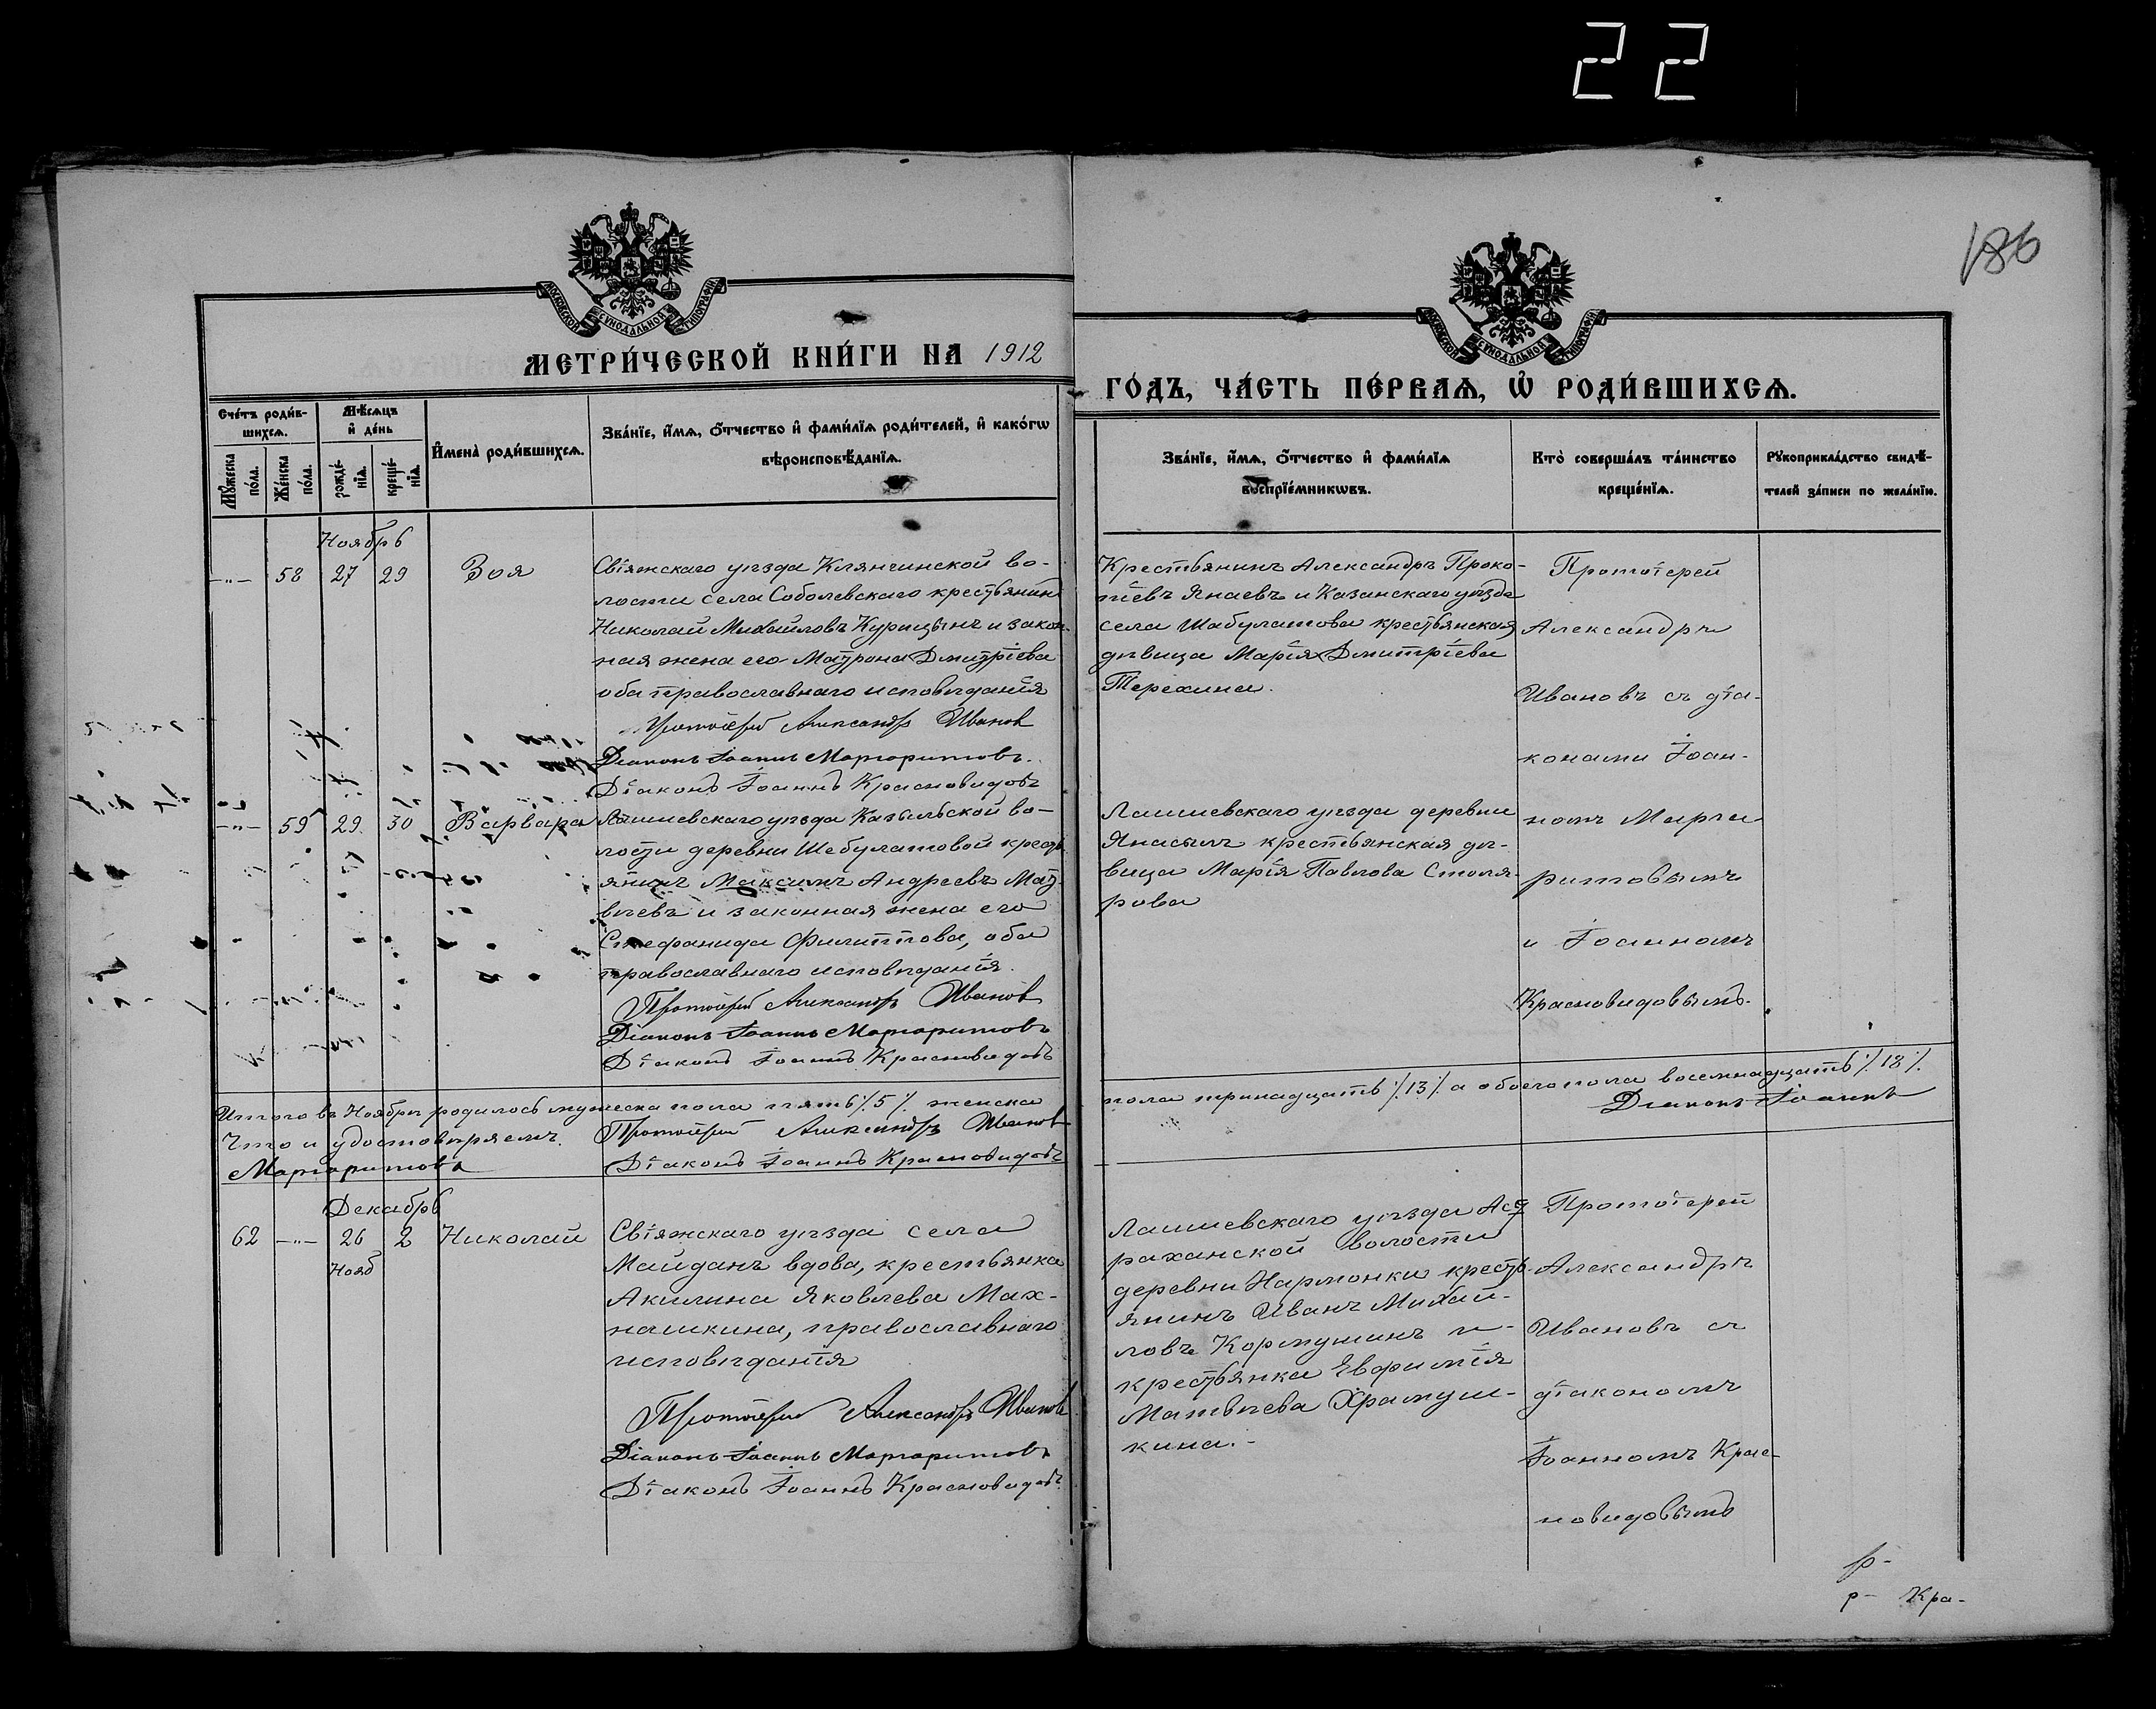 22
186
МОСКОВСКОЙ СѴНОДАЛЬНОЙ ТИПОГРАФІИ
МОСКОВСКОЙ СѴНОДАЛЬНОЙ ТИПОГРАФІИ
МЕТРИ́ЧЕСКОЙ КНИ́ГИ НА 1912
ГО́ДЪ, ЧА́СТЬ ПЕ́РВАѦ, Ѡ҆ РОДИ́ВШИХСѦ.
Сче́тъ роди́в-
шихсѧ.
Мѣ́сѧцъ
и҆ де́нь
И҆мена̀ роди́вшихсѧ.
Зва́нїе, и҆́мѧ, ѻ҆́тчество и҆ фами́лїѧ роди́телей, и҆ како́гѡ
вѣроисповѣ́данїѧ.
Мꙋ́жеска
по́ла.
Же́нска
по́ла.
рожде́-
нїѧ.
креще́-
нїѧ.
Зва́нїе, и҆́мѧ, ѻ҆́тчество и҆ фами́лїѧ
воспрїе́мникѡвъ.
Кто̀ соверша́лъ та́инство
креще́нїѧ.
Рꙋкоприкла́дство свидѣ́-
телей за́писи по жела́нїю.
Ноябрь
-"- 58 27 29 Зоя
Свіяжскаго уѣзда Клянчинской во-
лости села Соболевскаго крестьянинъ
Николай Михайловъ Курицынъ и закон-
ная жена его Матрона Дмитріева
оба православнаго исповѣданія
Протоіерей Александръ Иванов
Діаконъ Іоаннъ Маргаритовъ.
Діаконъ Іоаннъ Красновидовъ
Крестьянинъ Александръ Проко-
піевъ Янаевъ и Казанскаго уѣзда
села Шабулатова крестьянская
дѣвица Марія Дмитріева
Терехина.
Протоіерей
Александръ
Ивановъ съ діа-
конами Іоан-
номъ Марга
ритовымъ
и Іоанномъ
Красновидовымъ.
-"- 59 29. 30 Варвара
Лаишевскаго уѣзда Казыльской во-
лости деревни Шебулатовой кресть
янинъ Максимъ Андреевъ Мат-
вѣевъ и законная жена его
Стефанида Филиппова, оба
православнаго исповѣданія.
Протоіерей Александръ Иванов
Діаконъ Іоаннъ Маргаритовъ
Діаконъ Іоаннъ Красновидовъ
Лаишевскаго уѣзда деревни
Янасылъ крестьянская дѣ-
вица Марія Павлова Столя-
рова
Итого въ Ноябрѣ родилось мужеска пола пять ٪ 5 ٪ женска
пола тринадцать ٪ 13 ٪ а обоего пола восемнадцать ٪ 18 ٪.
Что и удостовѣряемъ. Протоіерей Александръ Иванов
Діаконъ Іоаннъ
Маргаритовъ Діаконъ Іоаннъ Красновидовъ
Декабрь
62 -"- 26 2 Николай
Нояб
Свіяжскаго уѣзда села
Майданъ вдова, крестьянка
Акилина Яковлева Мах-
нашкина, православнаго
исповѣданія
Протоіерей Александръ Иванов
Діаконъ Іоаннъ Маргаритовъ
Діаконъ Іоаннъ Красновидовъ
Лаишевскаго уѣзда Аст
раханской волости
деревни Нармонки кресть-
янинъ Иванъ Михай-
ловъ Кормушинъ и-
крестьянка Евфимія
Матвѣева Храмуш-
кина.-
Протоіерей
Александръ
Ивановъ съ
діакономъ
Іоанномъ Крас-
новидовымъ
р- Кра-